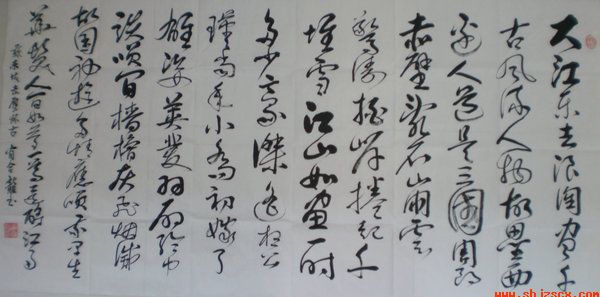 大江东去浪淘尽千
古风流人物故垒西
边人道是三國周郎
赤壁乱石崩雲
惊涛拍岸捲起千
堆雪江山如画一时
多少豪傑遥想公
瑾当年小乔初嫁了
雄姿英发羽扇纶巾
谈笑间樯橹灰飞烟灭
故国神游多情应笑我早生
华发人间如梦一尊还酹江月
苏东坡赤壁怀古
www.shjzscx.com